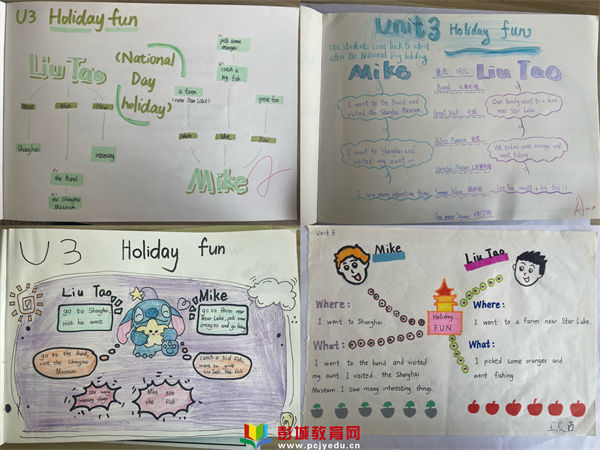 U3 Holiday fun
pick some
oranges
catch a
big fish
Liu Tao
(National
Day
holiday)
a farm
(near Star Lake)
great fun
Where
What
How
Shanghai
interesting
the Bund
the Shanghai
Museum
Where
What
How
Mike
Unit 3 Holiday fun
The students come back to school
after the National Day holiday
Mike
Liu Tao
Bund
I went to the Bund and
visited the Shanghai Museum
Our family went to a farm
near Star Lake
I went to Shanghai and
visited my aunt
We picked some oranges and
went fishing
Shanghai Museum
I saw many interesting things
Summer Palace
U3 Holiday fun
Liu Tao
Mike
go to Shanghai
visit his aunt
go to farm near
Star Lake, pick some
oranges and go fishing
go to the bund,
visit the Shanghai
Museum
catch a big fish
saw many
interesting things
Mike eat
the fish
Unit 3
Mike
Liu Tao
Where:
I went to Shanghai.
Holiday
FUN
Where:
I went to a farm near Star Lake.
What:
I went to the bund and visited
my aunt I visited the Shanghai
Museum I saw many interesting things.
What:
I picked some oranges and
went fishing
彭城教育网
www.pcjyedu.cn